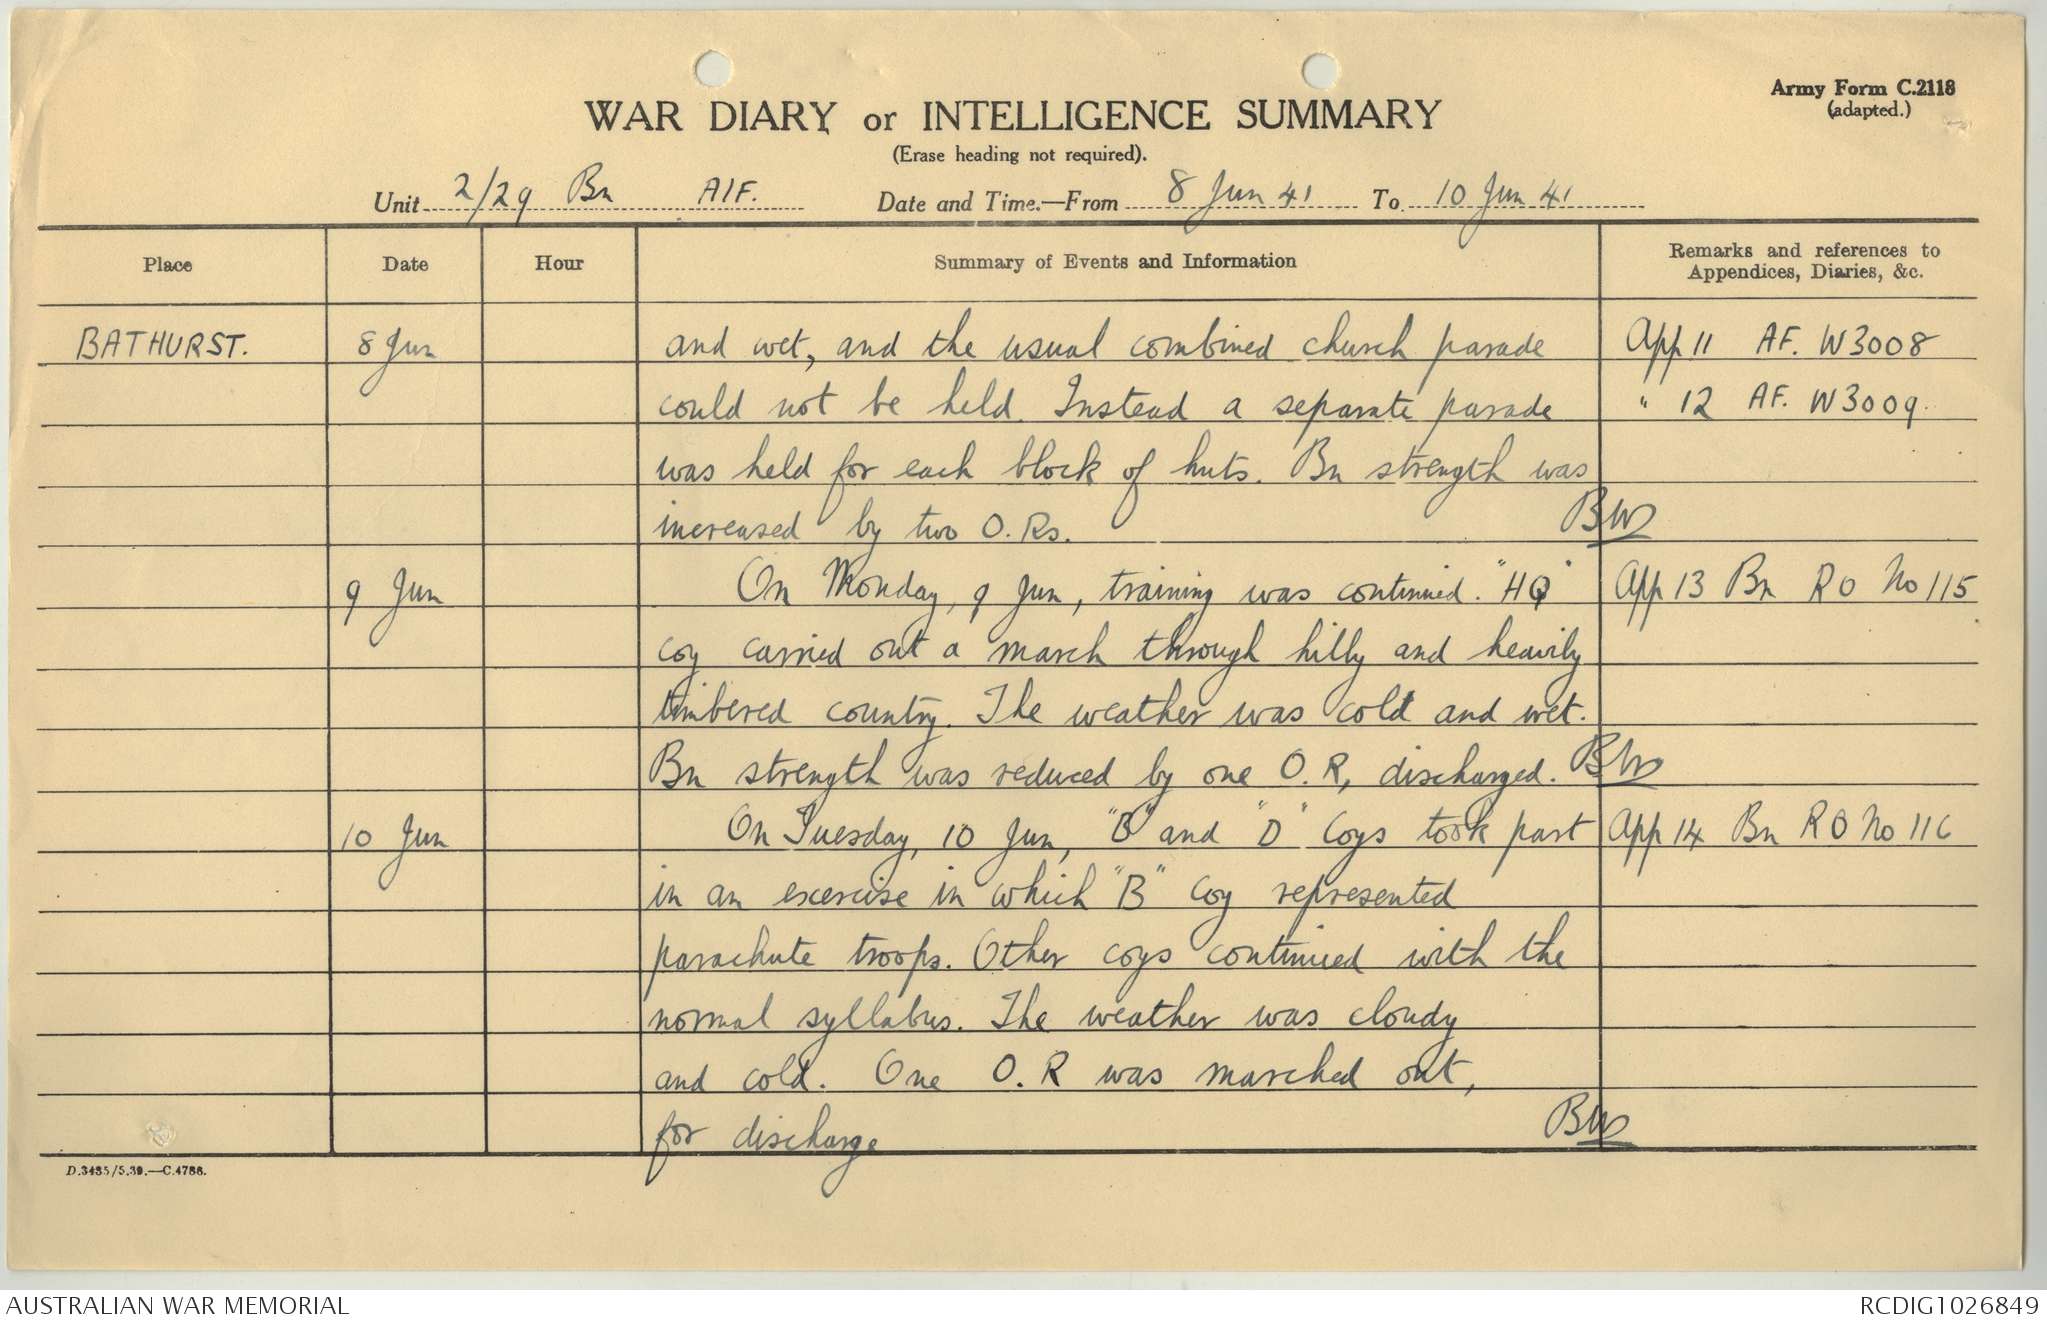 Army Form C.2118
(adapted.)
WAR DIARY or INTELLIGENCE SUMMARY
(Erase heading not required).
Unit 2/29 Bn AIF. Date and Time.—From 8 Jun 41 To 10 Jun 41
Place Date Hour Summary of Events and Information Remarks and references to Appendices, Diaries, &c.
BATHURST. 8 Jun and wet, and the usual combined church parade App 11 AF. W3008
could not be held. Instead a separate parade " 12 AF. W3009.
was held for each block of huts. Bn strength was
increased by two O.Rs.
9 Jun On Monday, 9 Jun, training was continued. "HQ" App 13 Bn RO No 115
coy carried out a march through hilly and heavily
timbered country. The weather was cold and wet.
Bn strength was reduced by one O.R, discharged.
10 Jun On Tuesday, 10 Jun, "B" and "D" Coys took part App 14 Bn RO No 116
in an exercise in which "B" Coy represented
parachute troops. Other coys continued with the
normal syllabus. The weather was cloudy
and cold. One O.R was marched out,
for discharge
D.3435/5.39.—C.4786.
AUSTRALIAN WAR MEMORIAL RCDIG1026849